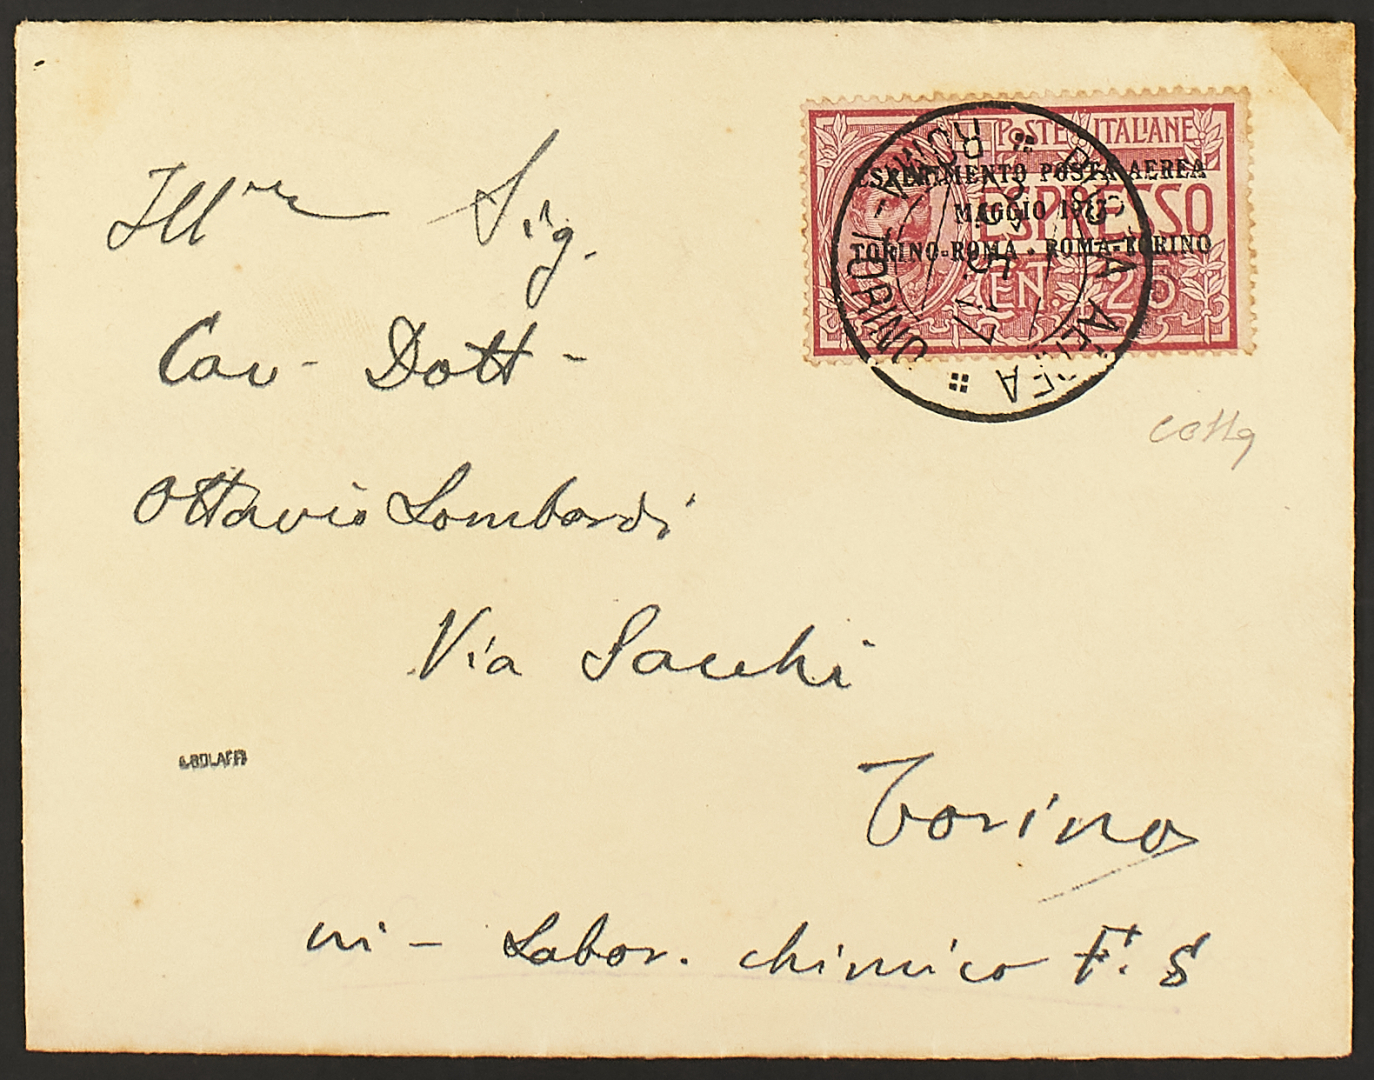 POSTE ITALIANE
ESPERIMENTO POSTA AEREA
MAGGIO 1917
ESPRESSO
TORINO-ROMA · ROMA-TORINO
CENT 25
POSTA AEREA
ROMA-TORINO
Ill^re Sig.
Cav - Dott -
Ottavio Lombardi
Via Sacchi
Torino
A. BOLAFFI
Labor. chimico F. S